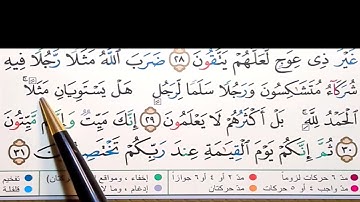 غَيْرَ ذِى عِوَجٍ لَّعَلَّهُمْ يَتَّقُونَ ٢٨ ضَرَبَ ٱللَّهُ مَثَلًا رَّجُلًا فِيهِ
شُرَكَآءُ مُتَشَـٰكِسُونَ وَرَجُلًا سَلَمًا لِّرَجُلٍ هَلْ يَسْتَوِيَانِ مَثَلًا ۚ
ٱلْحَمْدُ لِلَّهِ ۚ بَلْ أَكْثَرُهُمْ لَا يَعْلَمُونَ ٢٩ إِنَّكَ مَيِّتٌ وَإِنَّهُم مَّيِّتُونَ
٣٠ ثُمَّ إِنَّكُمْ يَوْمَ ٱلْقِيَـٰمَةِ عِندَ رَبِّكُمْ تَخْتَصِمُونَ ٣١
مدّ ٦ حركات لزوماً مدّ ٢ أو ٤ أو ٦ جوازاً إخفاء ، ومواقع حركتان) تفخيم
مدّ واجب ٤ أو ٥ حركات مدّ حركتان إدغام ، وما لا قلقلة